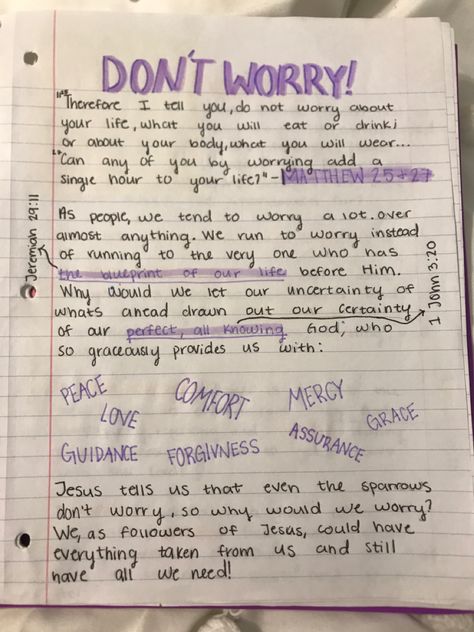 DON'T WORRY!
"²⁵Therefore I tell you, do not worry about
your life, what you will eat or drink;
or about your body, what you will wear...
²⁷Can any of you by worrying add a
single hour to your life?" - MATTHEW 25+27
As people, we tend to worry a lot. over
almost anything. We run to worry instead
of running to the very one who has
the blueprint of our life before Him.
Why would we let our uncertainty of
whats ahead drawn out our certainty
of our perfect, all knowing God, who
so graceously provides us with:
Jeremiah 29:11
1 John 3:20
PEACE
LOVE
COMFORT
MERCY
GRACE
GUIDANCE
FORGIVNESS
ASSURANCE
Jesus tells us that even the sparrows
don't worry, so why would we worry?
We, as followers of Jesus, could have
everything taken from us and still
have all we need!